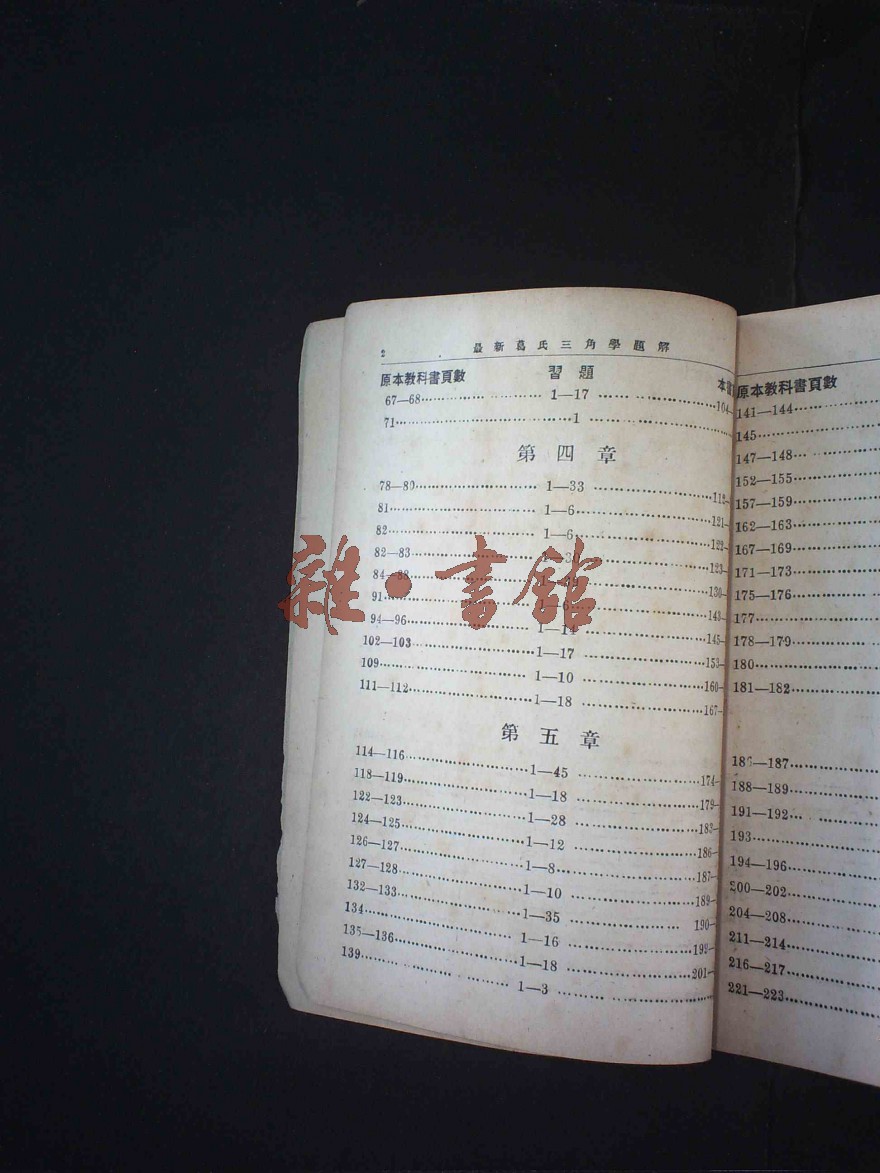 2 最新葛氏三角學題解
原本教科書頁數 習題 本
67—68 1—17 104—
71 1
第四章
78—80 1—33 112—
81 1—6 121—
82 1—6 122—
82—83 1—30 123—
84—88 130—
91 1—6 143—
94—96 1—14 145—
102—103 1—17 153—
109 1—10 160—
111—112 1—18 167—
第五章
114—116 1—45 174—
118—119 1—18 179—
122—123 1—28 183—
124—125 1—12 186—
126—127 1—8 187—
127—128 1—10 189—
132—133 1—35 190—
134 1—16 199—
135—136 1—18 201—
139 1—3
原本教科書頁數
141—144
145
147—148
152—155
157—159
162—163
167—169
171—173
175—176
177
178—179
180
181—182
185—187
188—189
191—192
193
194—196
200—202
204—208
211—214
216—217
221—223
雜·書館